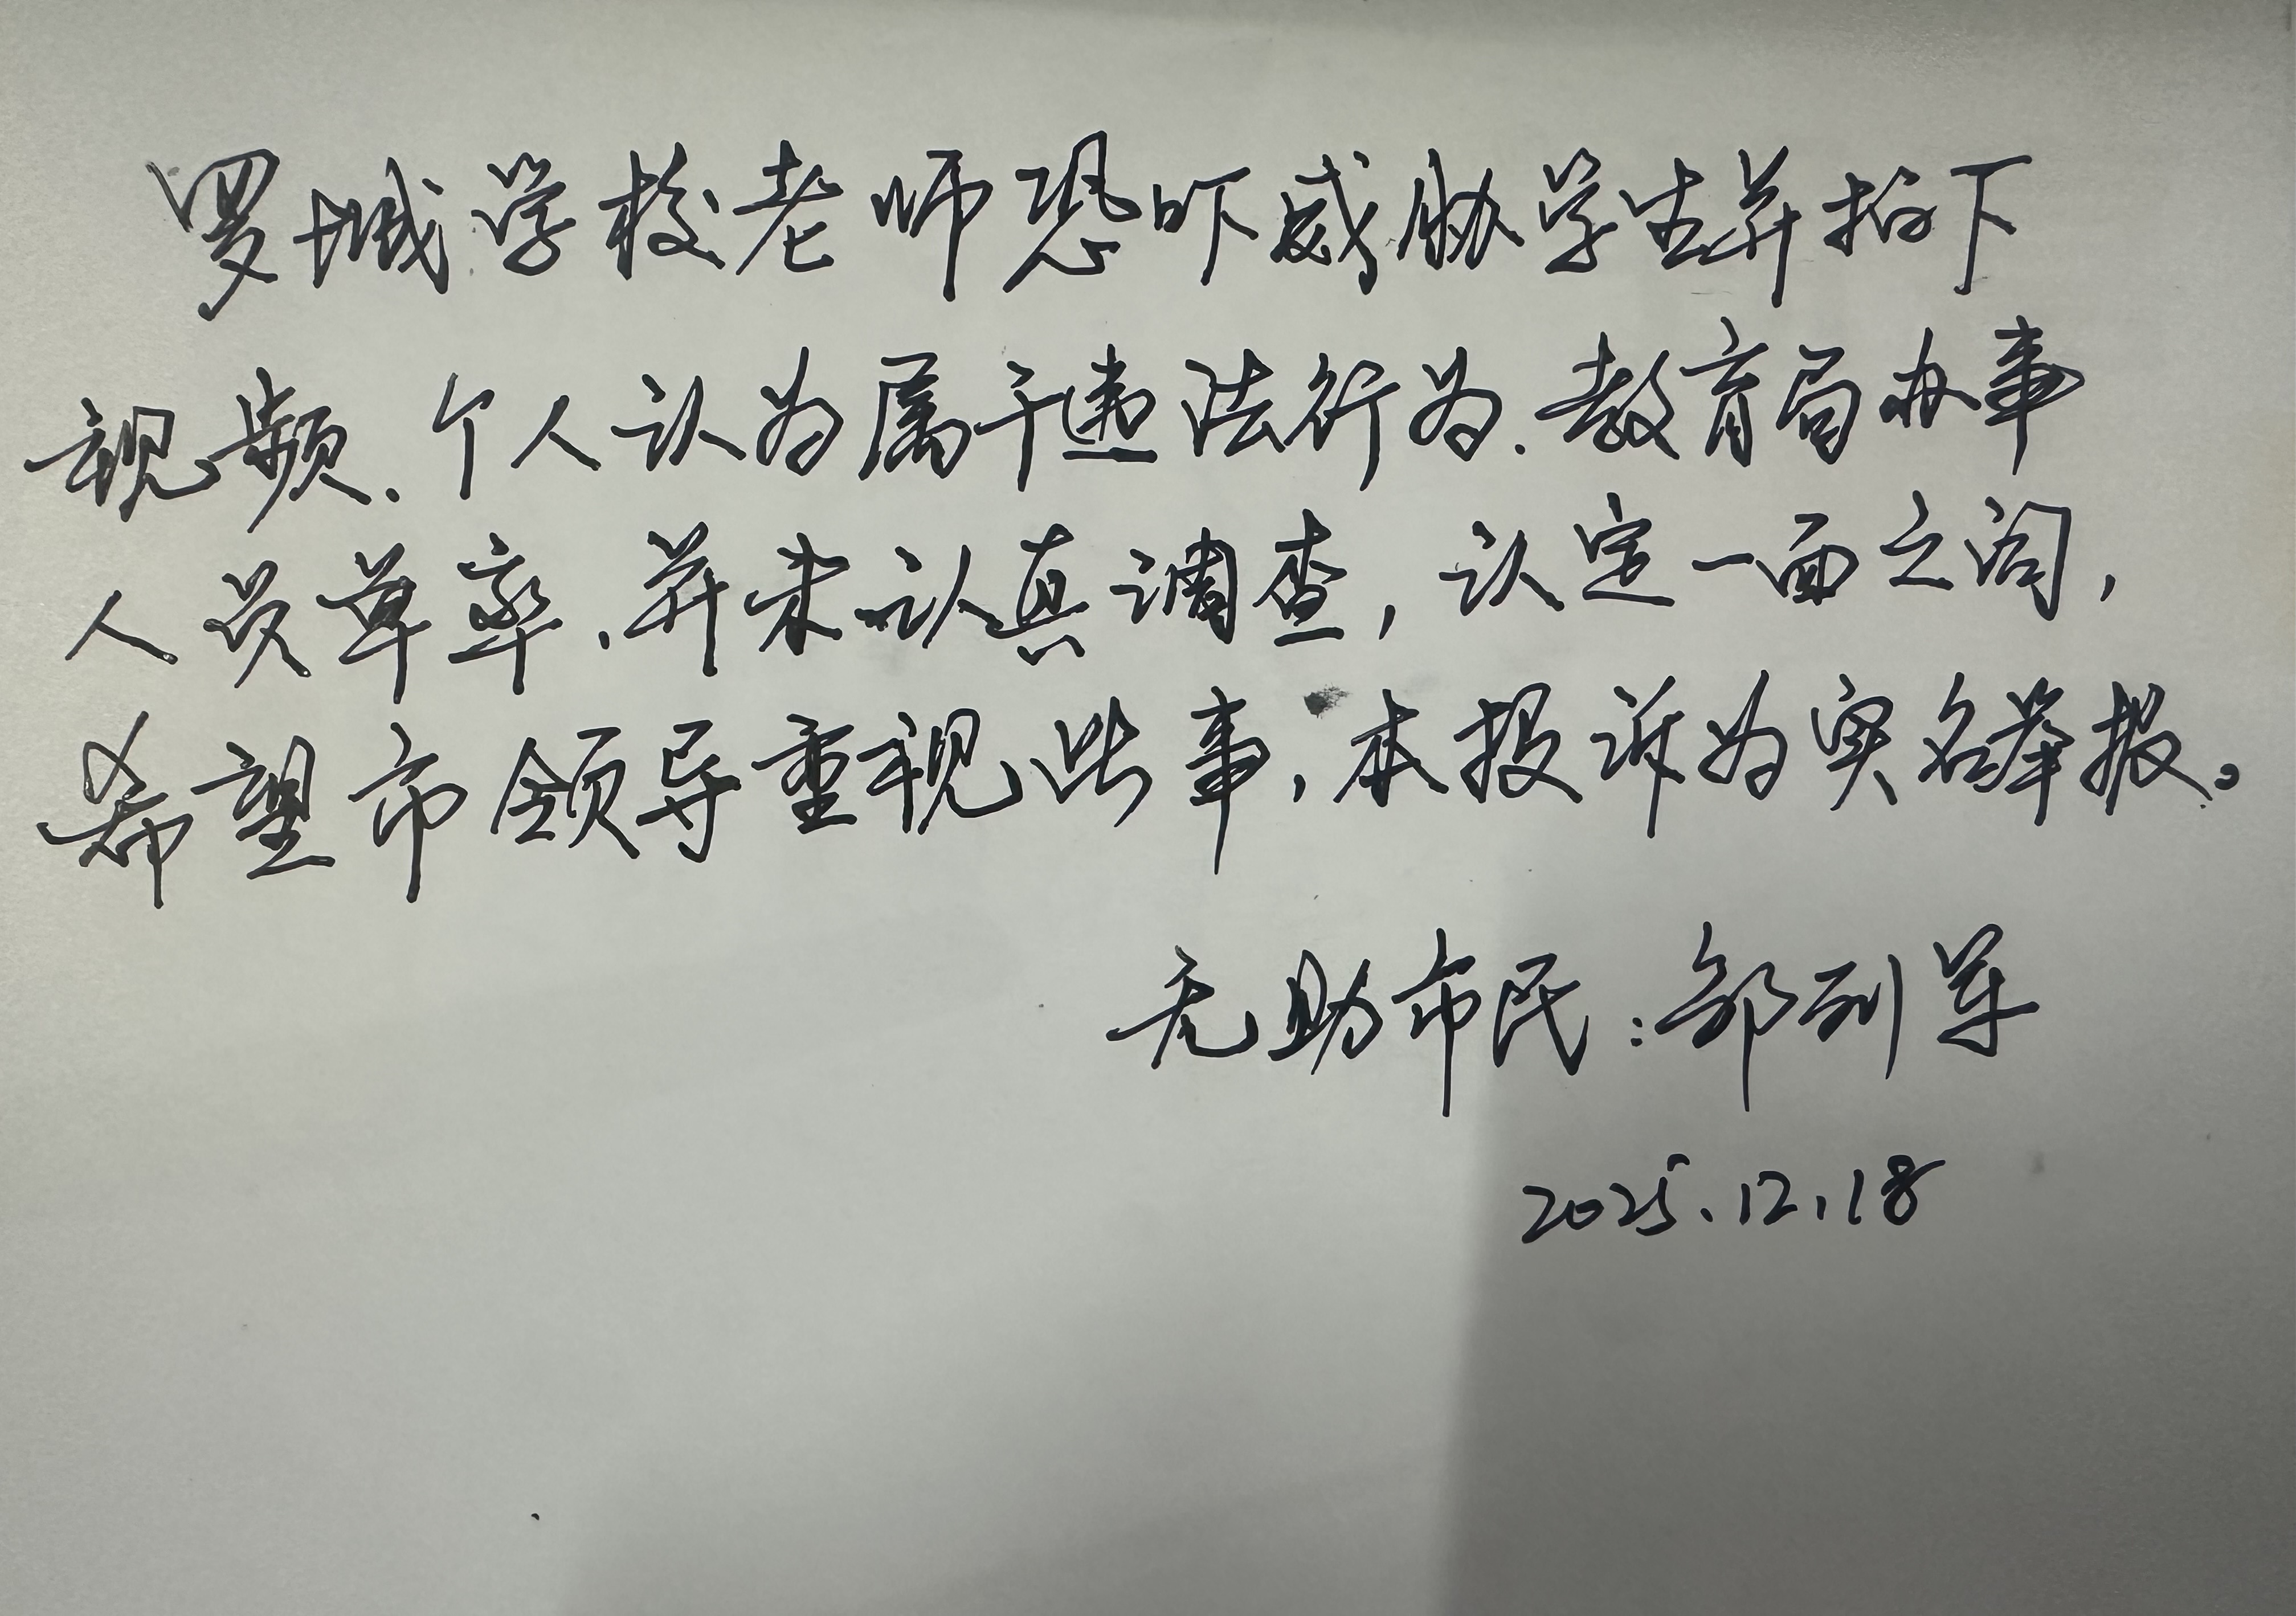 罗城学校老师恐吓威胁学生并拍下
视频.个人认为属于违法行为.教育局办事
人员草率.并未认真调查,认定一面之词,
希望市领导重视此事,本投诉为实名举报。
无助市民:邹列军
2025.12.18